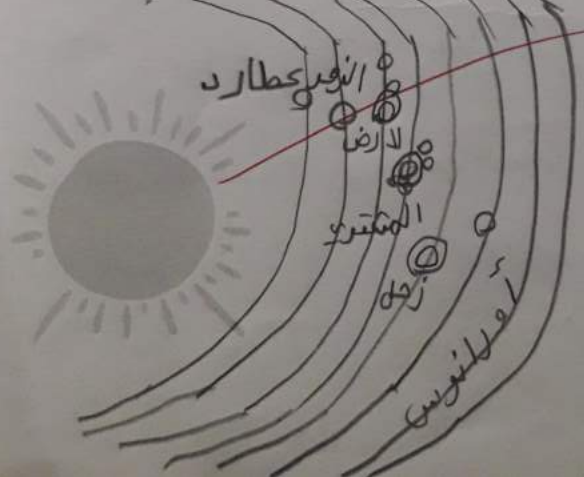 عطارد
الزهر
لارض
المشتري
زحل
أورانوس